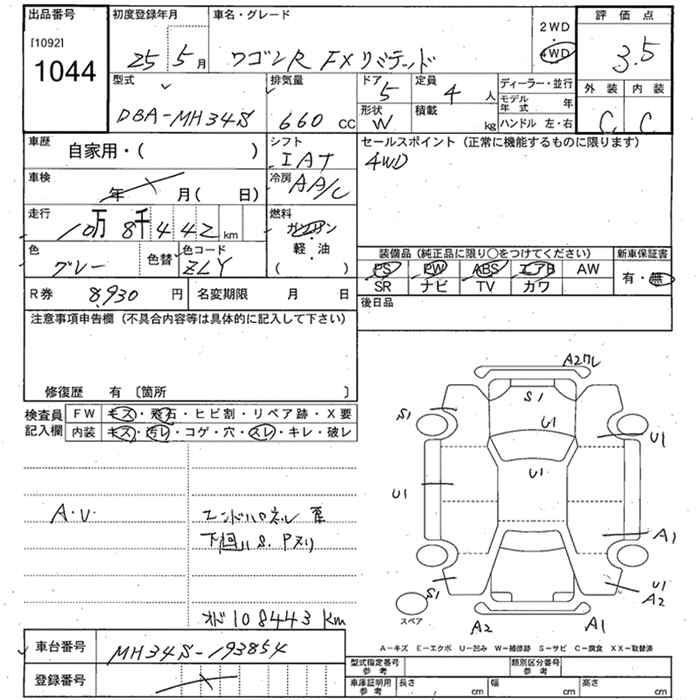 出品番号
[1092]
1044
初度登録年月
25 5 月
車名・グレード
ワゴンR FXリミテッド
2WD
・
4WD
評価点
3.5
外装 内装
C C
型式
DBA-MH34S
排気量
660 CC
ドア
5
定員
4 人
形状
W
積載
kg
ディーラー・並行
モデル年式 年
ハンドル 左・右
車歴
自家用・( )
シフト
IAT
セールスポイント (正常に機能するものに限ります)
4WD
車検
年 月( 日)
冷房
AA/C
走行
10万 8千 4 4 2 km
燃料
ガソリン
軽・油
( )
色
グレー
色替
色コード
ZLY
装備品 (純正品に限り○をつけてください)
新車保証書
PS PW ABS エアB AW
有・無
SR ナビ TV カワ
R券 8,930 円
名変期限 月 日
後日品
注意事項申告欄 (不具合内容等は具体的に記入して下さい)
修復歴 有 〔箇所 〕
検査員記入欄
FW キズ・飛石・ヒビ割・リペア跡・X要
内装 キズ・汚レ・コゲ・穴・スレ・キレ・破レ
A.V.
エンドパネル 歪
下廻り S. Pヌリ
オド 108443 km
A2ワレ
S1
S1
U1
U1
U1
U1
A1
S1
U1
A2
スペア
A2
A1
A-キズ E-エクボ U-凹み W-補修跡 S-サビ C-腐食 XX-取替済
車台番号
MH34S-193854
登録番号
型式指定番号
参考
類別区分番号
参考
車庫証明用
参考
長さ cm
幅 cm
高さ cm